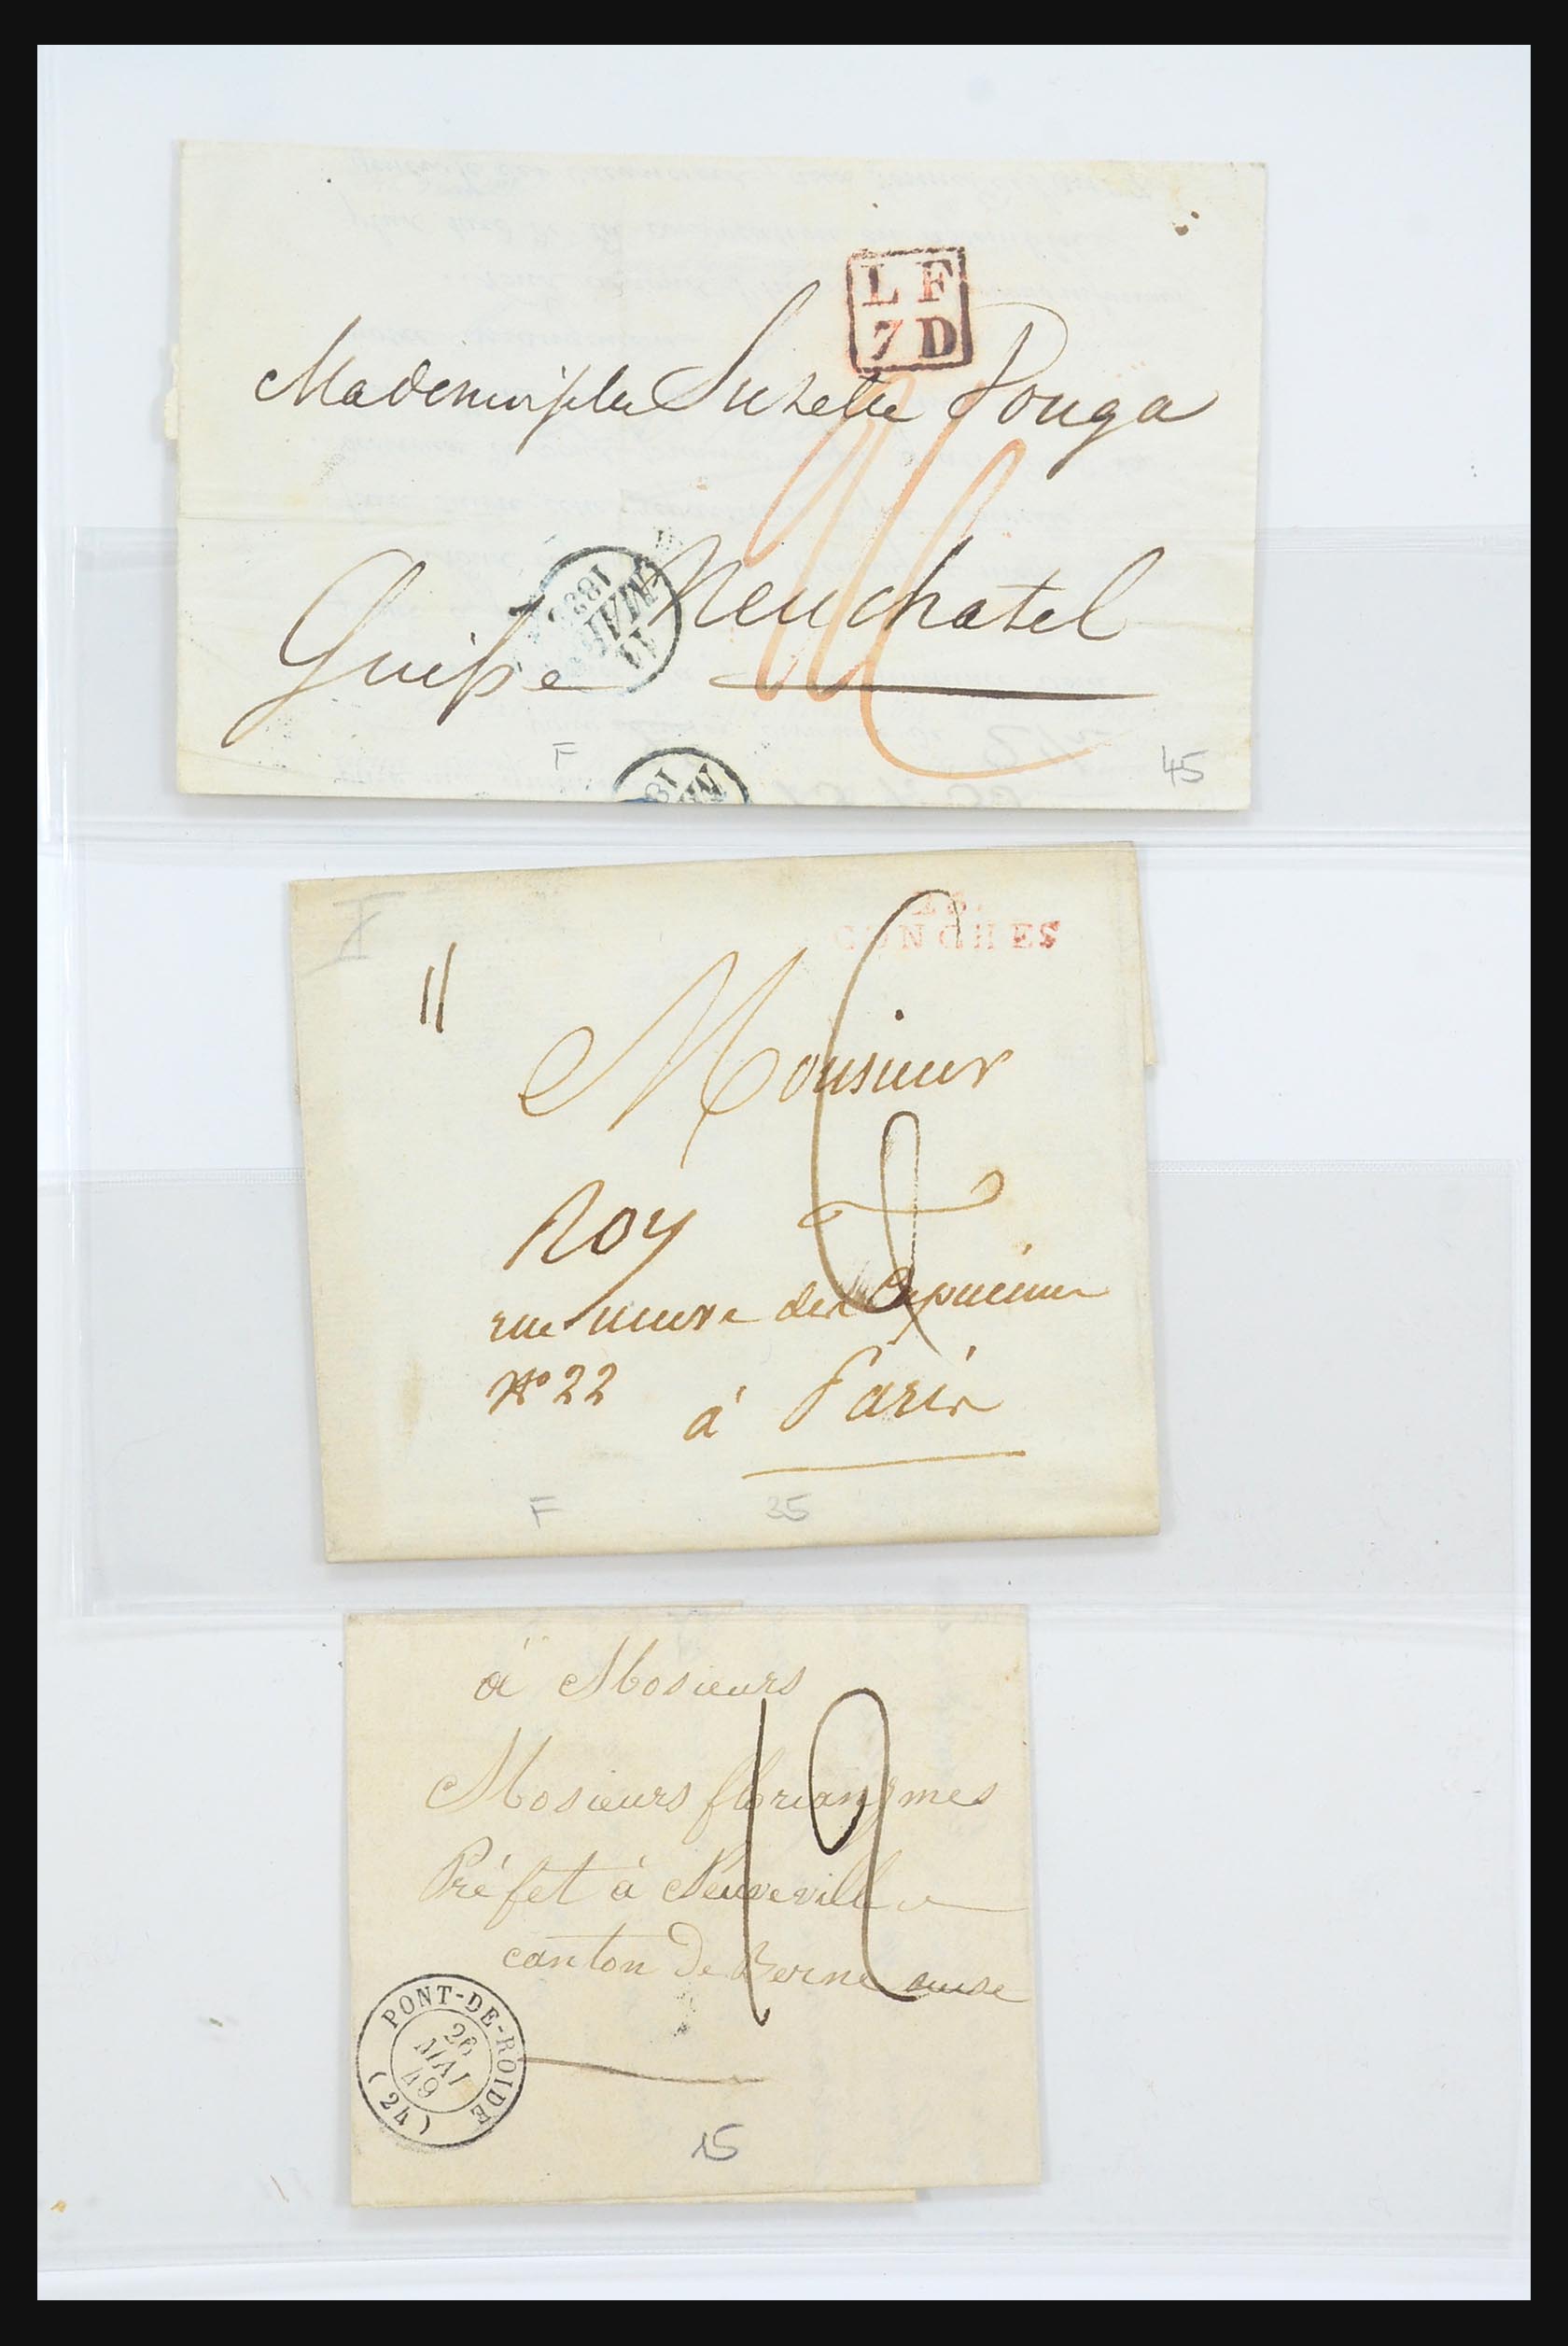 L F
7 D
Mademoiselle Suzette Pouga
Neuchatel
Suisse
11
MAR
183
F
45
CONCHES
11
Monsieur
Roy
rue neuve des Capucines
N° 22
à Paris
F
35
à Mosieurs
12
Mosieurs florian
Préfet à Neuveville
canton de Berne suise
PONT-DE-ROIDE
26
MAI
49
(24)
15